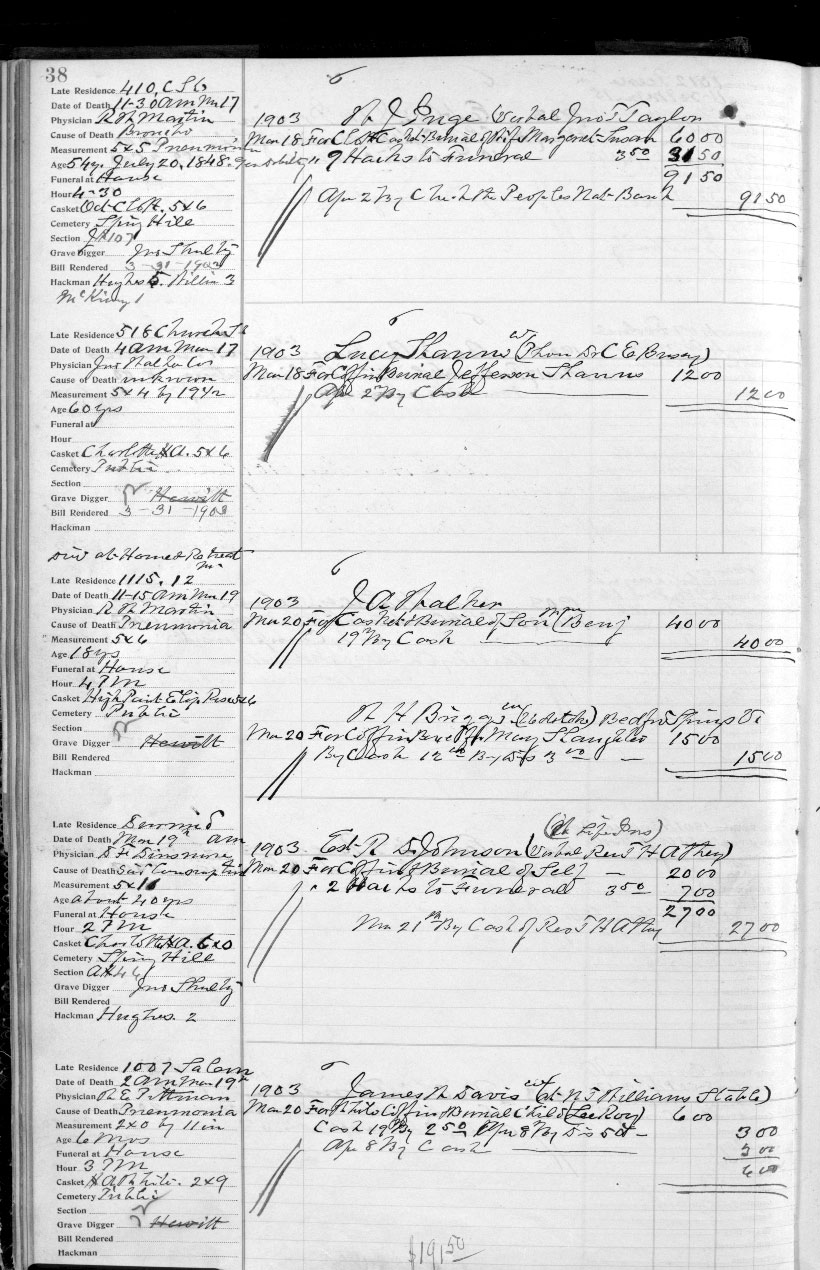 38
Late Residence 410, C St
Date of Death 11-30 am Mar 17
Physician R W Martin
Cause of Death Broncho
Measurement 5x5 Pneumonia
Age 54 y. July 20, 1848.
Funeral at House
Hour 4-30
Casket Oct Cloth. 5x6
Cemetery Spring Hill
Section 107
Grave Digger Jno Shulty
Bill Rendered 3-31-1903
Hackman Hughes 5. 3
McKinny 1
1903 W J Inge Verbal Jno T Taylor
Mar 18 For Cloth Casket & Burial of Wife Margaret Susan 60 00
" 9 Hacks to Funeral 3 50 31 50
91 50
Apr 2 By Check the Peoples Nat Bank 91 50
Late Residence 518 Church St
Date of Death 4 am Mar 17
Physician Jno
Cause of Death unknown
Measurement 5x4 by 19 1/2
Age 60 yrs
Funeral at
Hour
Casket Charlotte A. 5x6
Cemetery Public
Section
Grave Digger Hewitt
Bill Rendered 3-31-1903
Hackman
1903 Lucy (Phon Dr C E Busey)
Mar 18 For Coffin Burial Jefferson 12 00
Apr 2nd By Cash 12 00
Died at Home & Retreat
Late Residence 1115. 12
Date of Death 11-15 am Mar 19
Physician R W Martin
Cause of Death Pneumonia
Measurement 5x6
Age 18 ys
Funeral at House
Hour 4 PM
Casket High
Cemetery Public
Section
Grave Digger Hewitt
Bill Rendered
Hackman
1903 J A Walker
Mar 20 For Casket & Burial of Son (Benj 40 00
19 By Cash 40 00
W H Briggs Bedford Springs Va
Mar 20 For Coffin Box for May Slaughter 15 00
By Cash 12 00 By 3 00 — 15 00
Late Residence
Date of Death Mar 19th am
Physician D F Dinsmore
Cause of Death Consumption
Measurement 5x11
Age about 40 yrs
Funeral at House
Hour 2 PM
Casket Charlotte A. 6x0
Cemetery Spring Hill
Section
Grave Digger Jno Shulty
Bill Rendered
Hackman Hughes. 2
(Life Ins)
1903 Est. R D Johnson (Verbal Rev T H Athey)
Mar 20 For Coffin & Burial of Self — 20 00
" 2 Hacks to Funeral 3 50 7 00
27 00
Mar 21st By Cash of Rev T H Athey 27 00
Late Residence 1007 Salem
Date of Death 2 am Mar 19th
Physician R E Tittman
Cause of Death Pneumonia
Measurement 2x0 by 11 in
Age 6 mos
Funeral at House
Hour 3 PM
Casket White. 2x9
Cemetery Public
Section
Grave Digger Hewitt
Bill Rendered
Hackman
1903 James W Davis (at N T Williams Stable)
Mar 20 For White Coffin & Burial Child (LeeRoy) 6 00
Cash 19 By 2 50 Apr 8 By Dis 50 — 3 00
Apr 8 By Cash 3 00
6 00
$191 50